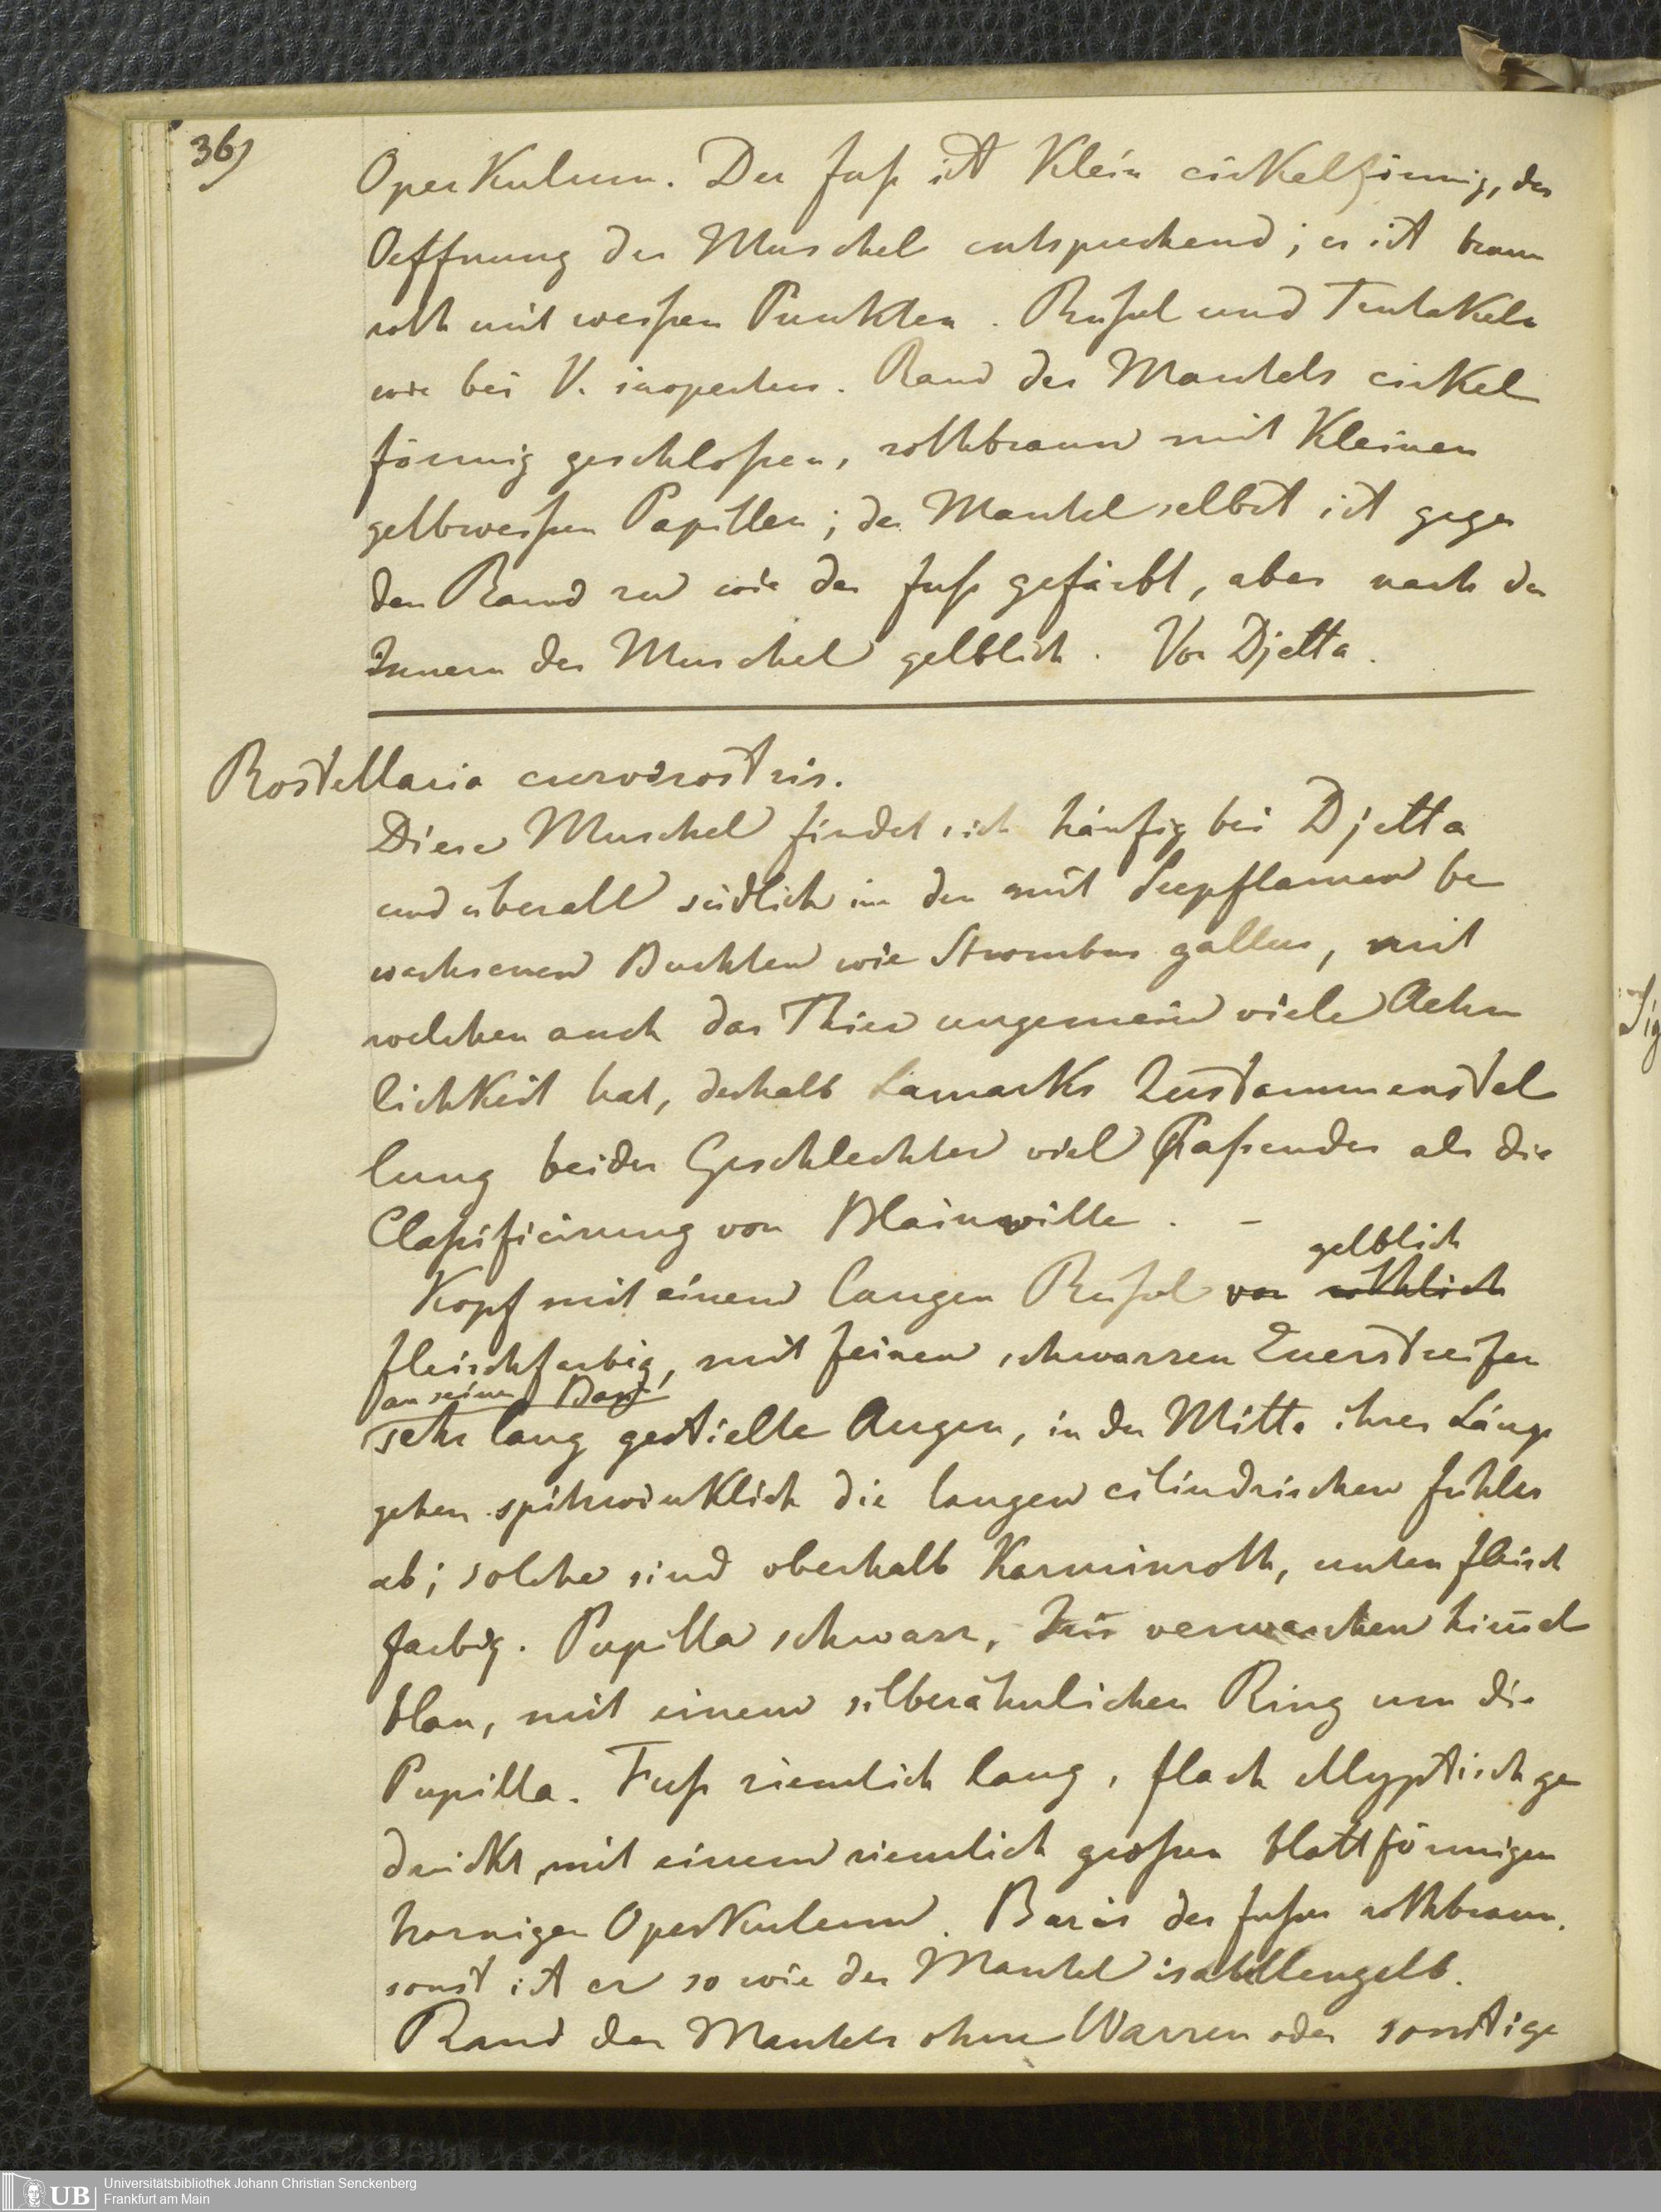 36)
Operkulum. Der Fuß ist klein cirkelförmig, der
Oeffnung der Muschel entsprechend; er ist braun
roth mit weißen Punkten. Rußel und Tentakeln
wie bei V. inopertus. Rand des Mantels cirkel
förmig geschloßen, rothbraun mit kleinen
gelbweißen Papillen; der Mantel selbst ist gegen
den Rand zu wie der Fuß gefärbt, aber nach dem
Innern der Muschel gelblich. Von Djetta.
Rostellaria curvirostris.
Diese Muschel findet sich häufig bei Djetta
und überall südlich in den mit Seepflanzen be
wachsenen Buchten wie Strombus gallus, mit
welchen auch das Thier ungemein viele Aehn
lichkeit hat, deshalb Lamarks Zustammenstel
lung beider Geschlechter viel Paßender als die
Claßificirung von Blainville. –
gelblich
Kopf mit einem langen Rußel von röthlich
fleischfarbig, mit feinen schwarzen Querstreifen
an seiner Basis
sehr lang gestielte Augen, in der Mitte ihrer Länge
gehen spitzwinklich die langen cilindrischen Fühler
ab; solche sind oberhalb karminroth, unten fleisch
farbig. Pupilla schwarz, Iris verwaschen himel
blau, mit einem silberähnlichen Ring um die
Pupilla. Fuß ziemlich lang, flach ellyptisch ge
drückt, mit einem ziemlich großen blattförmigen
hornigen Operkulum. Basis des Fußes rothbraun.
sonst ist er so wie der Mantel isabellengelb.
Rand des Mantels ohne Warzen oder sonstige
Universitätsbibliothek Johann Christian Senckenberg
Frankfurt am Main
UB